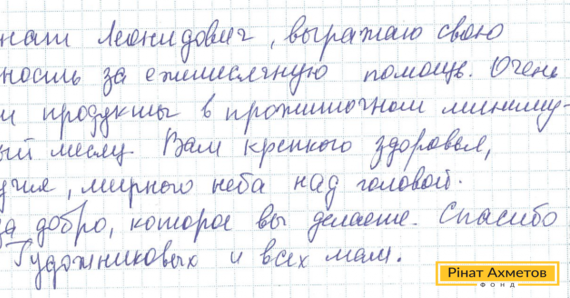 нат Леонидович, выражаю свою
ность за ежемесячную помощь. Очень
и продукты в прожиточном миниму-
ый месяц. Вам крепкого здоровья,
учия, мирного неба над головой.
за добро, которое вы делаете. Спасибо
Гудожниковых и всех мам.
Рінат Ахметов
ФОНД